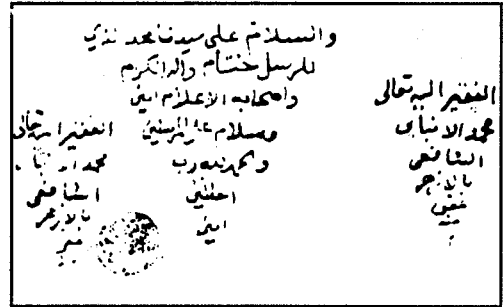 والسلام على سيدنا محمد الذي
للرسل ختام واله الكرام
واصحابه الاعلام امين
وسلام على المرسلين
والحمد لله رب
العلمين
امين
الفقير اليه تعالى
محمد الانبابى
الشافعى
بالازهر
عفى
عنه
الفقير اليه تعالى
محمد
الشافعى
بالازهر